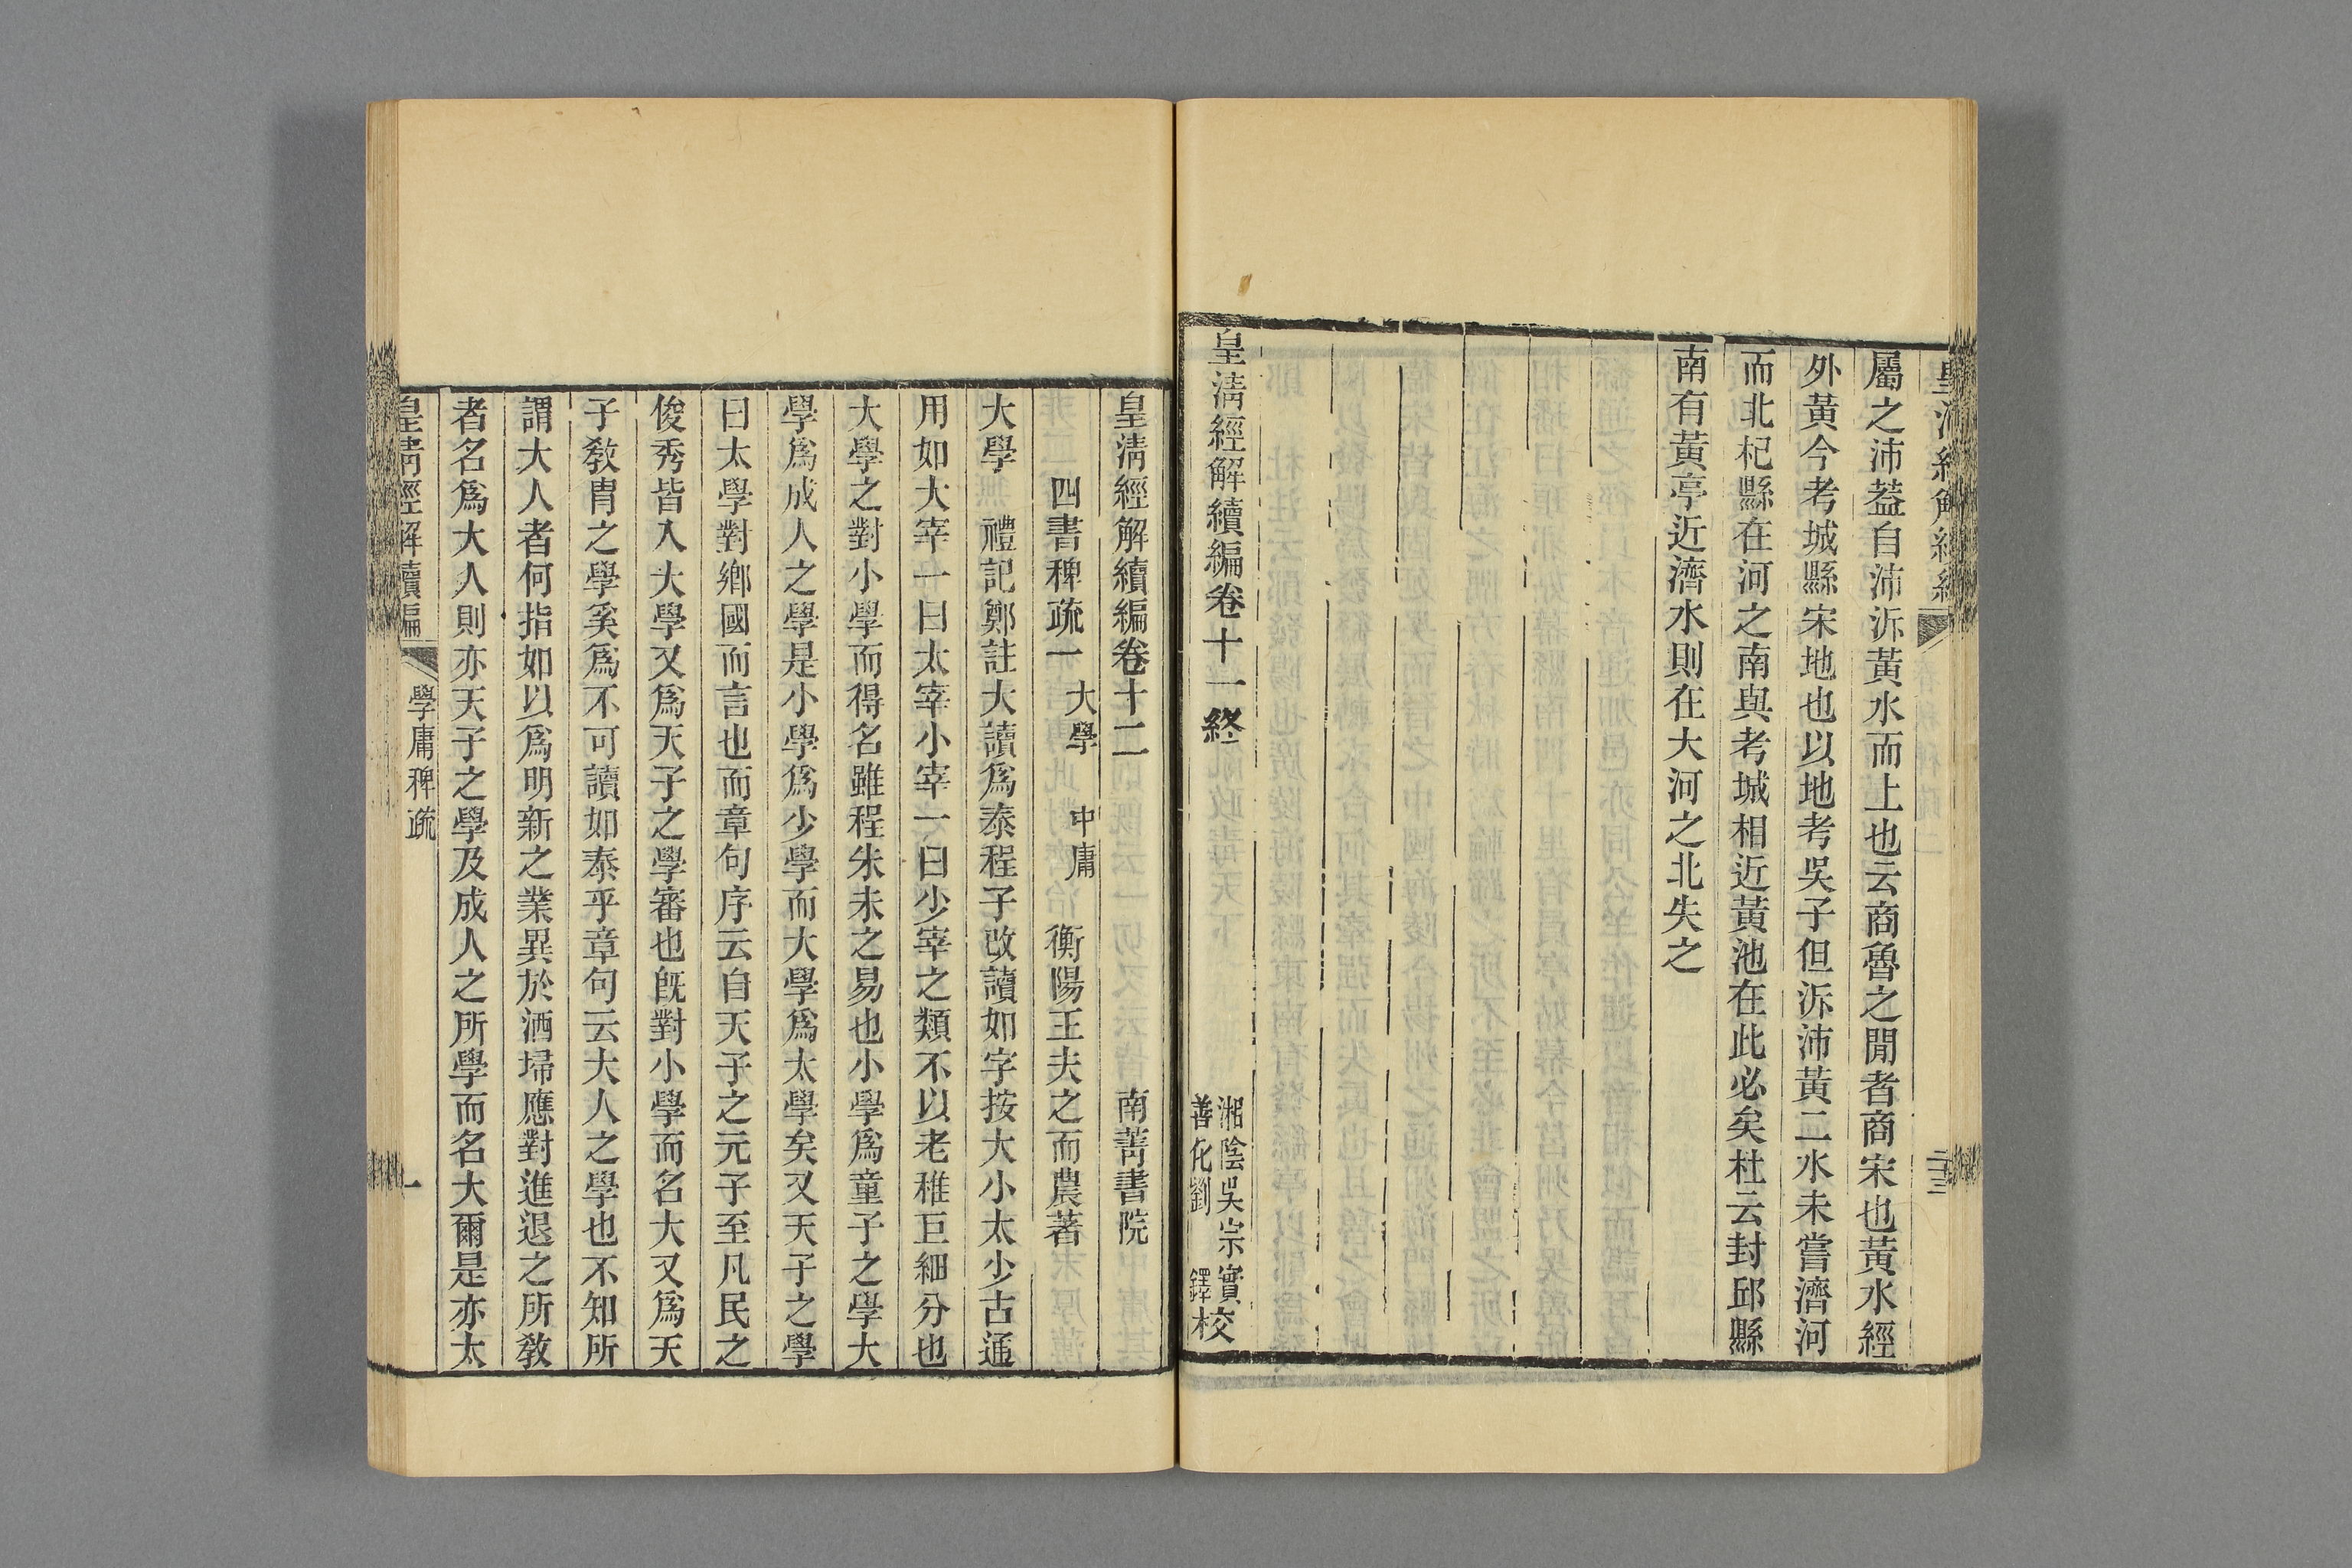 屬之沛葢自沛泝黃水而上也云商魯之閒者商宋也黃水經
外黃今考城縣宋地也以地考吳子但泝沛黃二水未嘗濟河
而北杞縣在河之南與考城相近黃池在此必矣杜云封邱縣
南有黃亭近濟水則在大河之北失之
皇淸經解續編卷十一終
湘陰吳宗實
善化劉 鐸校
皇淸經解續編卷十二 南菁書院
四書稗疏一 大學 中庸 衡陽王夫之而農著
大學 禮記鄭註大讀爲泰程子改讀如字按大小太少古通
用如大宰一曰太宰小宰一曰少宰之類不以老稚巨細分也
大學之對小學而得名雖程朱未之易也小學爲童子之學大
學爲成人之學是小學爲少學而大學爲太學矣又天子之學
曰太學對鄉國而言也而章句序云自天子之元子至凡民之
俊秀皆入大學又爲天子之學審也旣對小學而名大又爲天
子敎胄之學奚爲不可讀如泰乎章句云大人之學也不知所
謂大人者何指如以爲明新之業異於洒埽應對進退之所敎
者名爲大人則亦天子之學及成人之所學而名大爾是亦太
皇淸經解續編 學庸稗疏 一